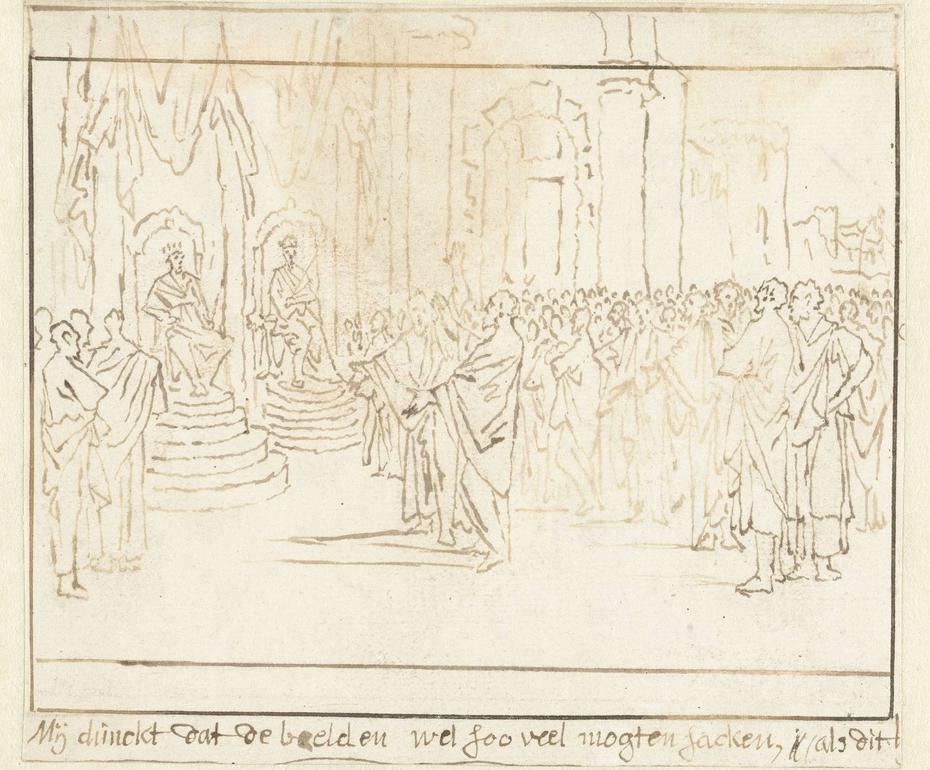 Mÿ dünckt dat de beelden wel soo veel mogten sacken, (als dit